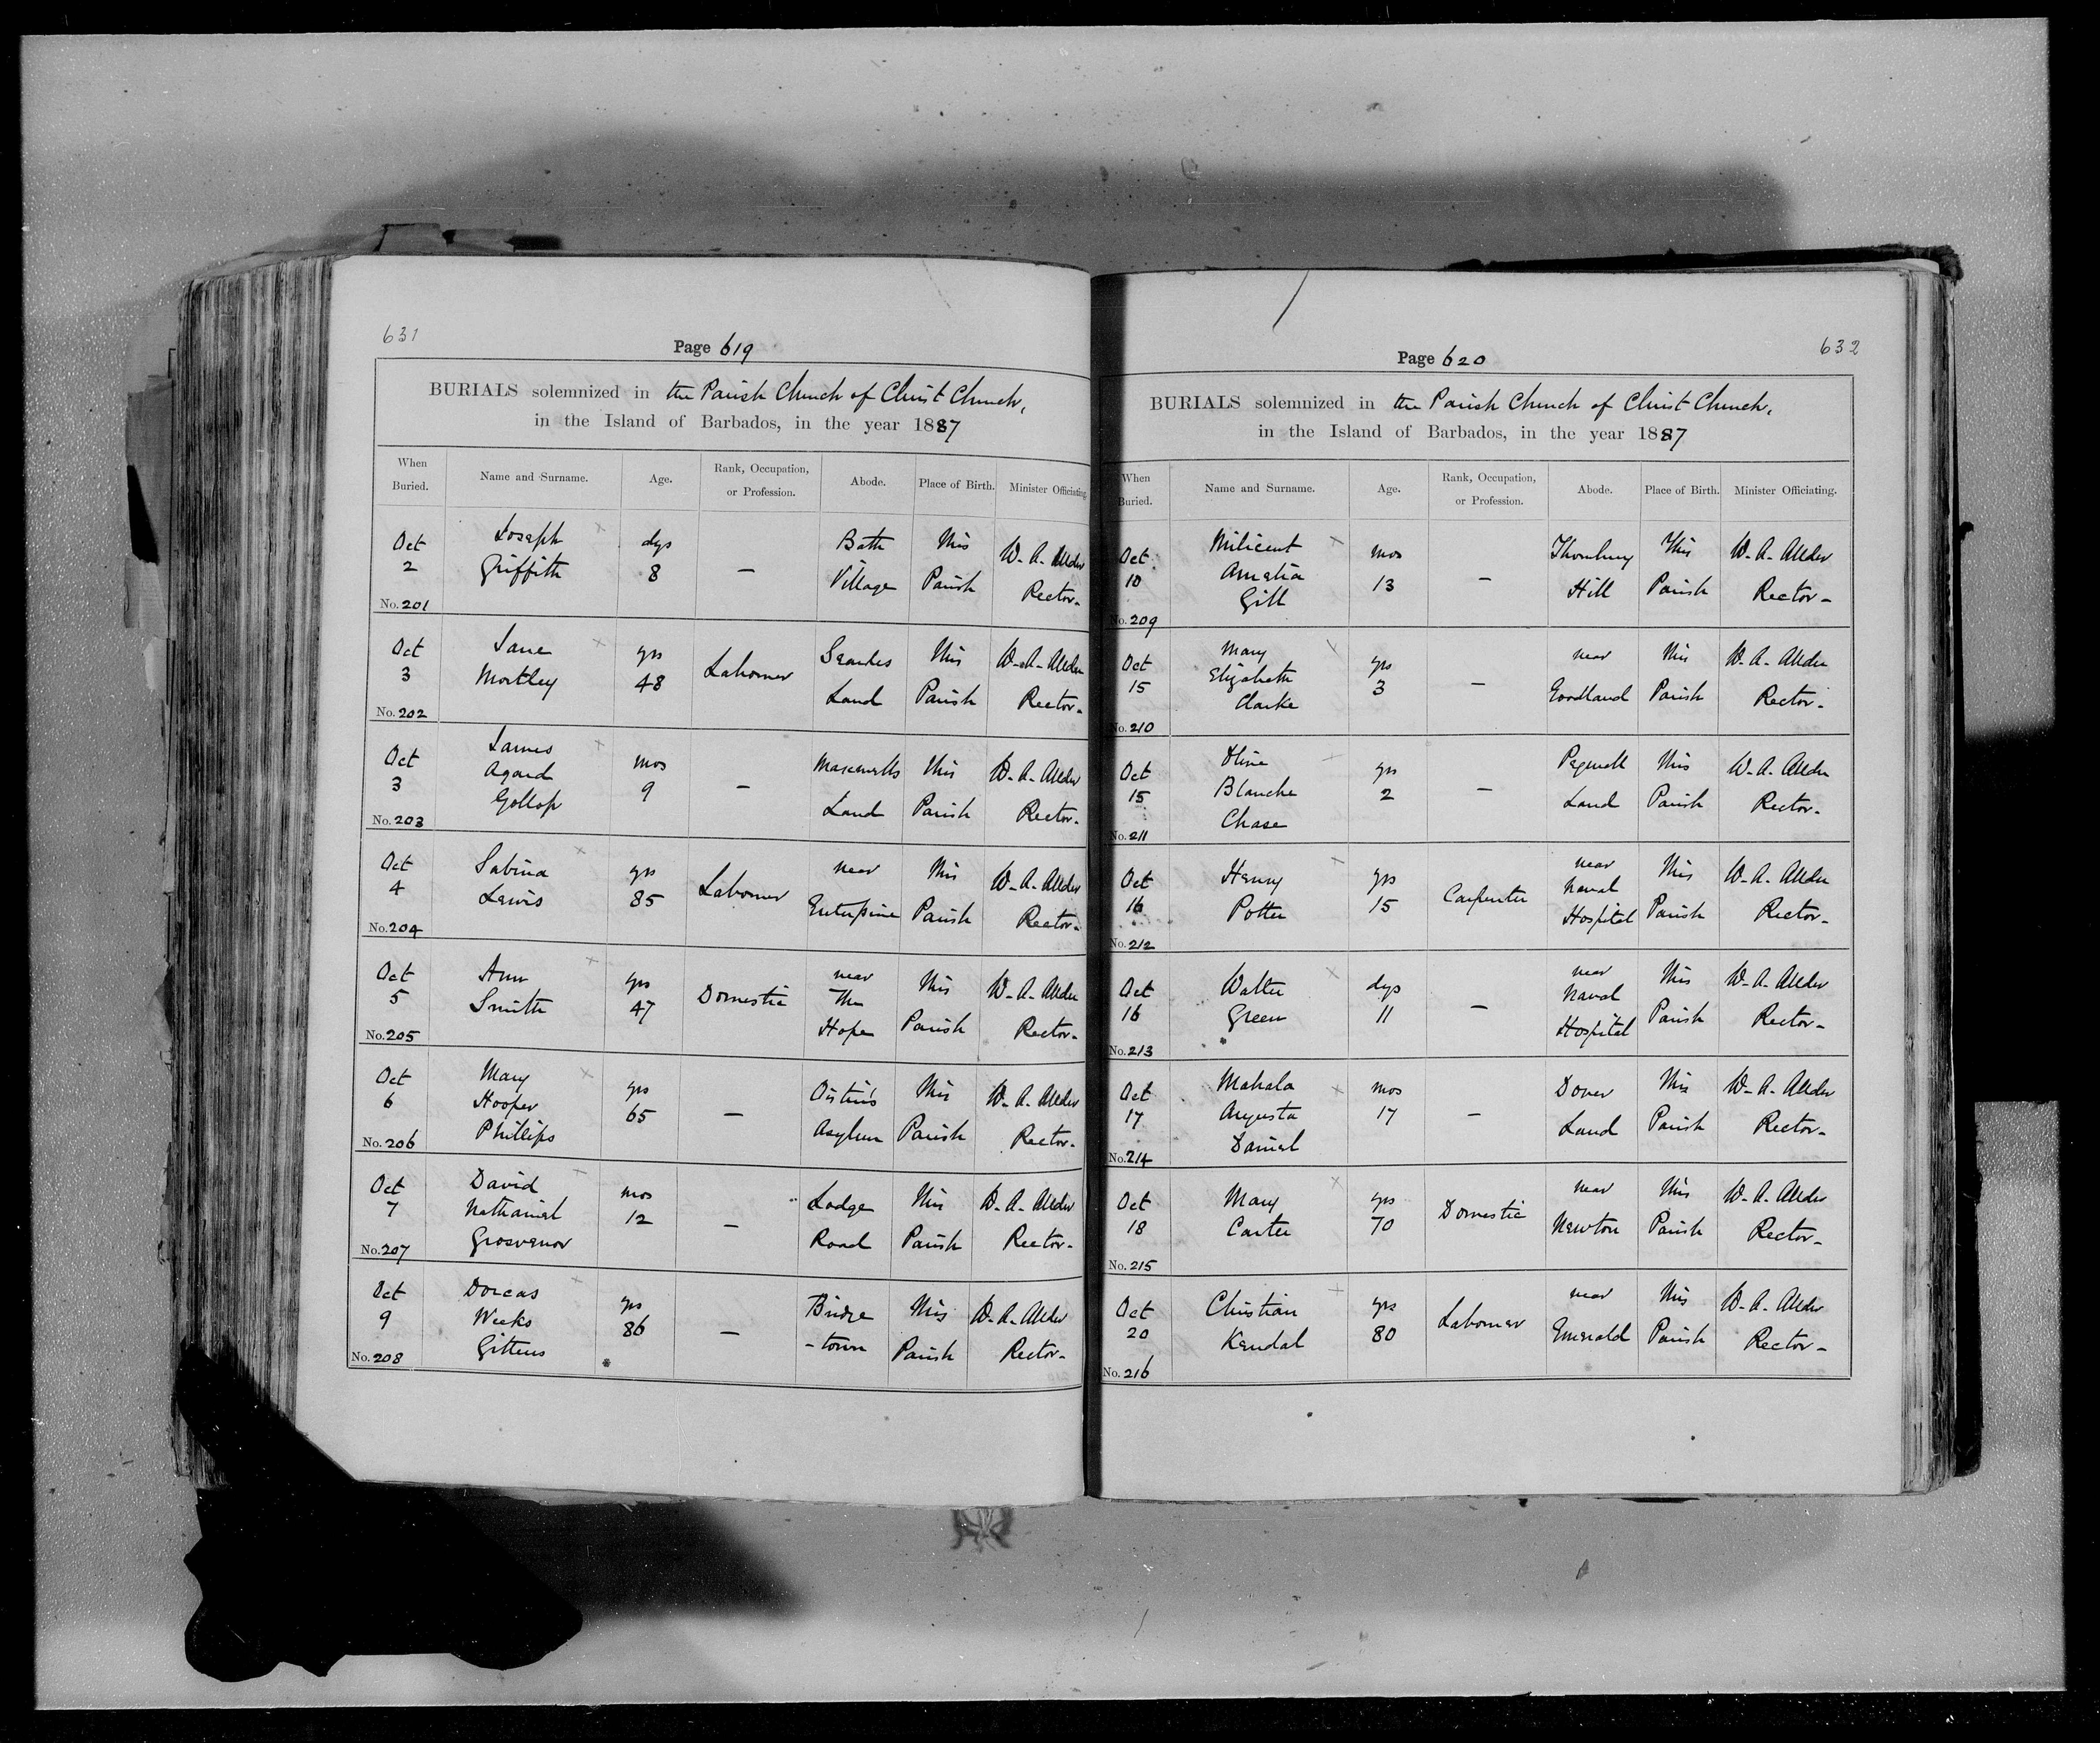 631
Page 619
BURIALS solemnized in the Parish Church of Christ Church,
in the Island of Barbados, in the year 1887
When Buried. Name and Surname. Age. Rank, Occupation, or Profession. Abode. Place of Birth. Minister Officiating.
Oct 2 Joseph Griffith dys 8 — Bath Village This Parish W. A. Allder Rector-
No. 201
Oct 3 Jane Mortley yrs 48 Labourer Land This Parish W. A. Allder Rector-
No. 202
Oct 3 James Agard Gollop mos 9 — Maxwells Land This Parish W. A. Allder Rector-
No. 203
Oct 4 Sabina Lewis yrs 85 Labourer near Enterprise This Parish W. A. Allder Rector-
No. 204
Oct 5 Ann Smith yrs 47 Domestic near The Hope This Parish W. A. Allder Rector-
No. 205
Oct 6 Mary Hooper Phillips yrs 65 — Oistin's Asylum This Parish W. A. Allder Rector-
No. 206
Oct 7 David Nathaniel Grosvenor mos 12 — Lodge Road This Parish W. A. Allder Rector-
No. 207
Oct 9 Dorcas Weeks Gittens yrs 86 — Bridge -town This Parish W. A. Allder Rector-
No. 208
632
Page 620
BURIALS solemnized in the Parish Church of Christ Church,
in the Island of Barbados, in the year 1887
When Buried. Name and Surname. Age. Rank, Occupation, or Profession. Abode. Place of Birth. Minister Officiating.
Oct 10 Milicent Amelia Gill mos 13 — Thornbury Hill This Parish W. A. Allder Rector-
No. 209
Oct 15 Mary Elizabeth Clarke yrs 3 — near Goodland This Parish W. A. Allder Rector-
No. 210
Oct 15 Olive Blanche Chase yrs 2 — Pegwell Land This Parish W. A. Allder Rector-
No. 211
Oct 16 Henry Potter yrs 15 Carpenter near Naval Hospital This Parish W. A. Allder Rector-
No. 212
Oct 16 Walter Green dys 11 — near Naval Hospital This Parish W. A. Allder Rector-
No. 213
Oct 17 Mahala Augusta Daniel mos 17 — Dover Land This Parish W. A. Allder Rector-
No. 214
Oct 18 Mary Carter yrs 70 Domestic near Newton This Parish W. A. Allder Rector-
No. 215
Oct 20 Christian Kendal yrs 80 Labourer near Emerald This Parish W. A. Allder Rector-
No. 216